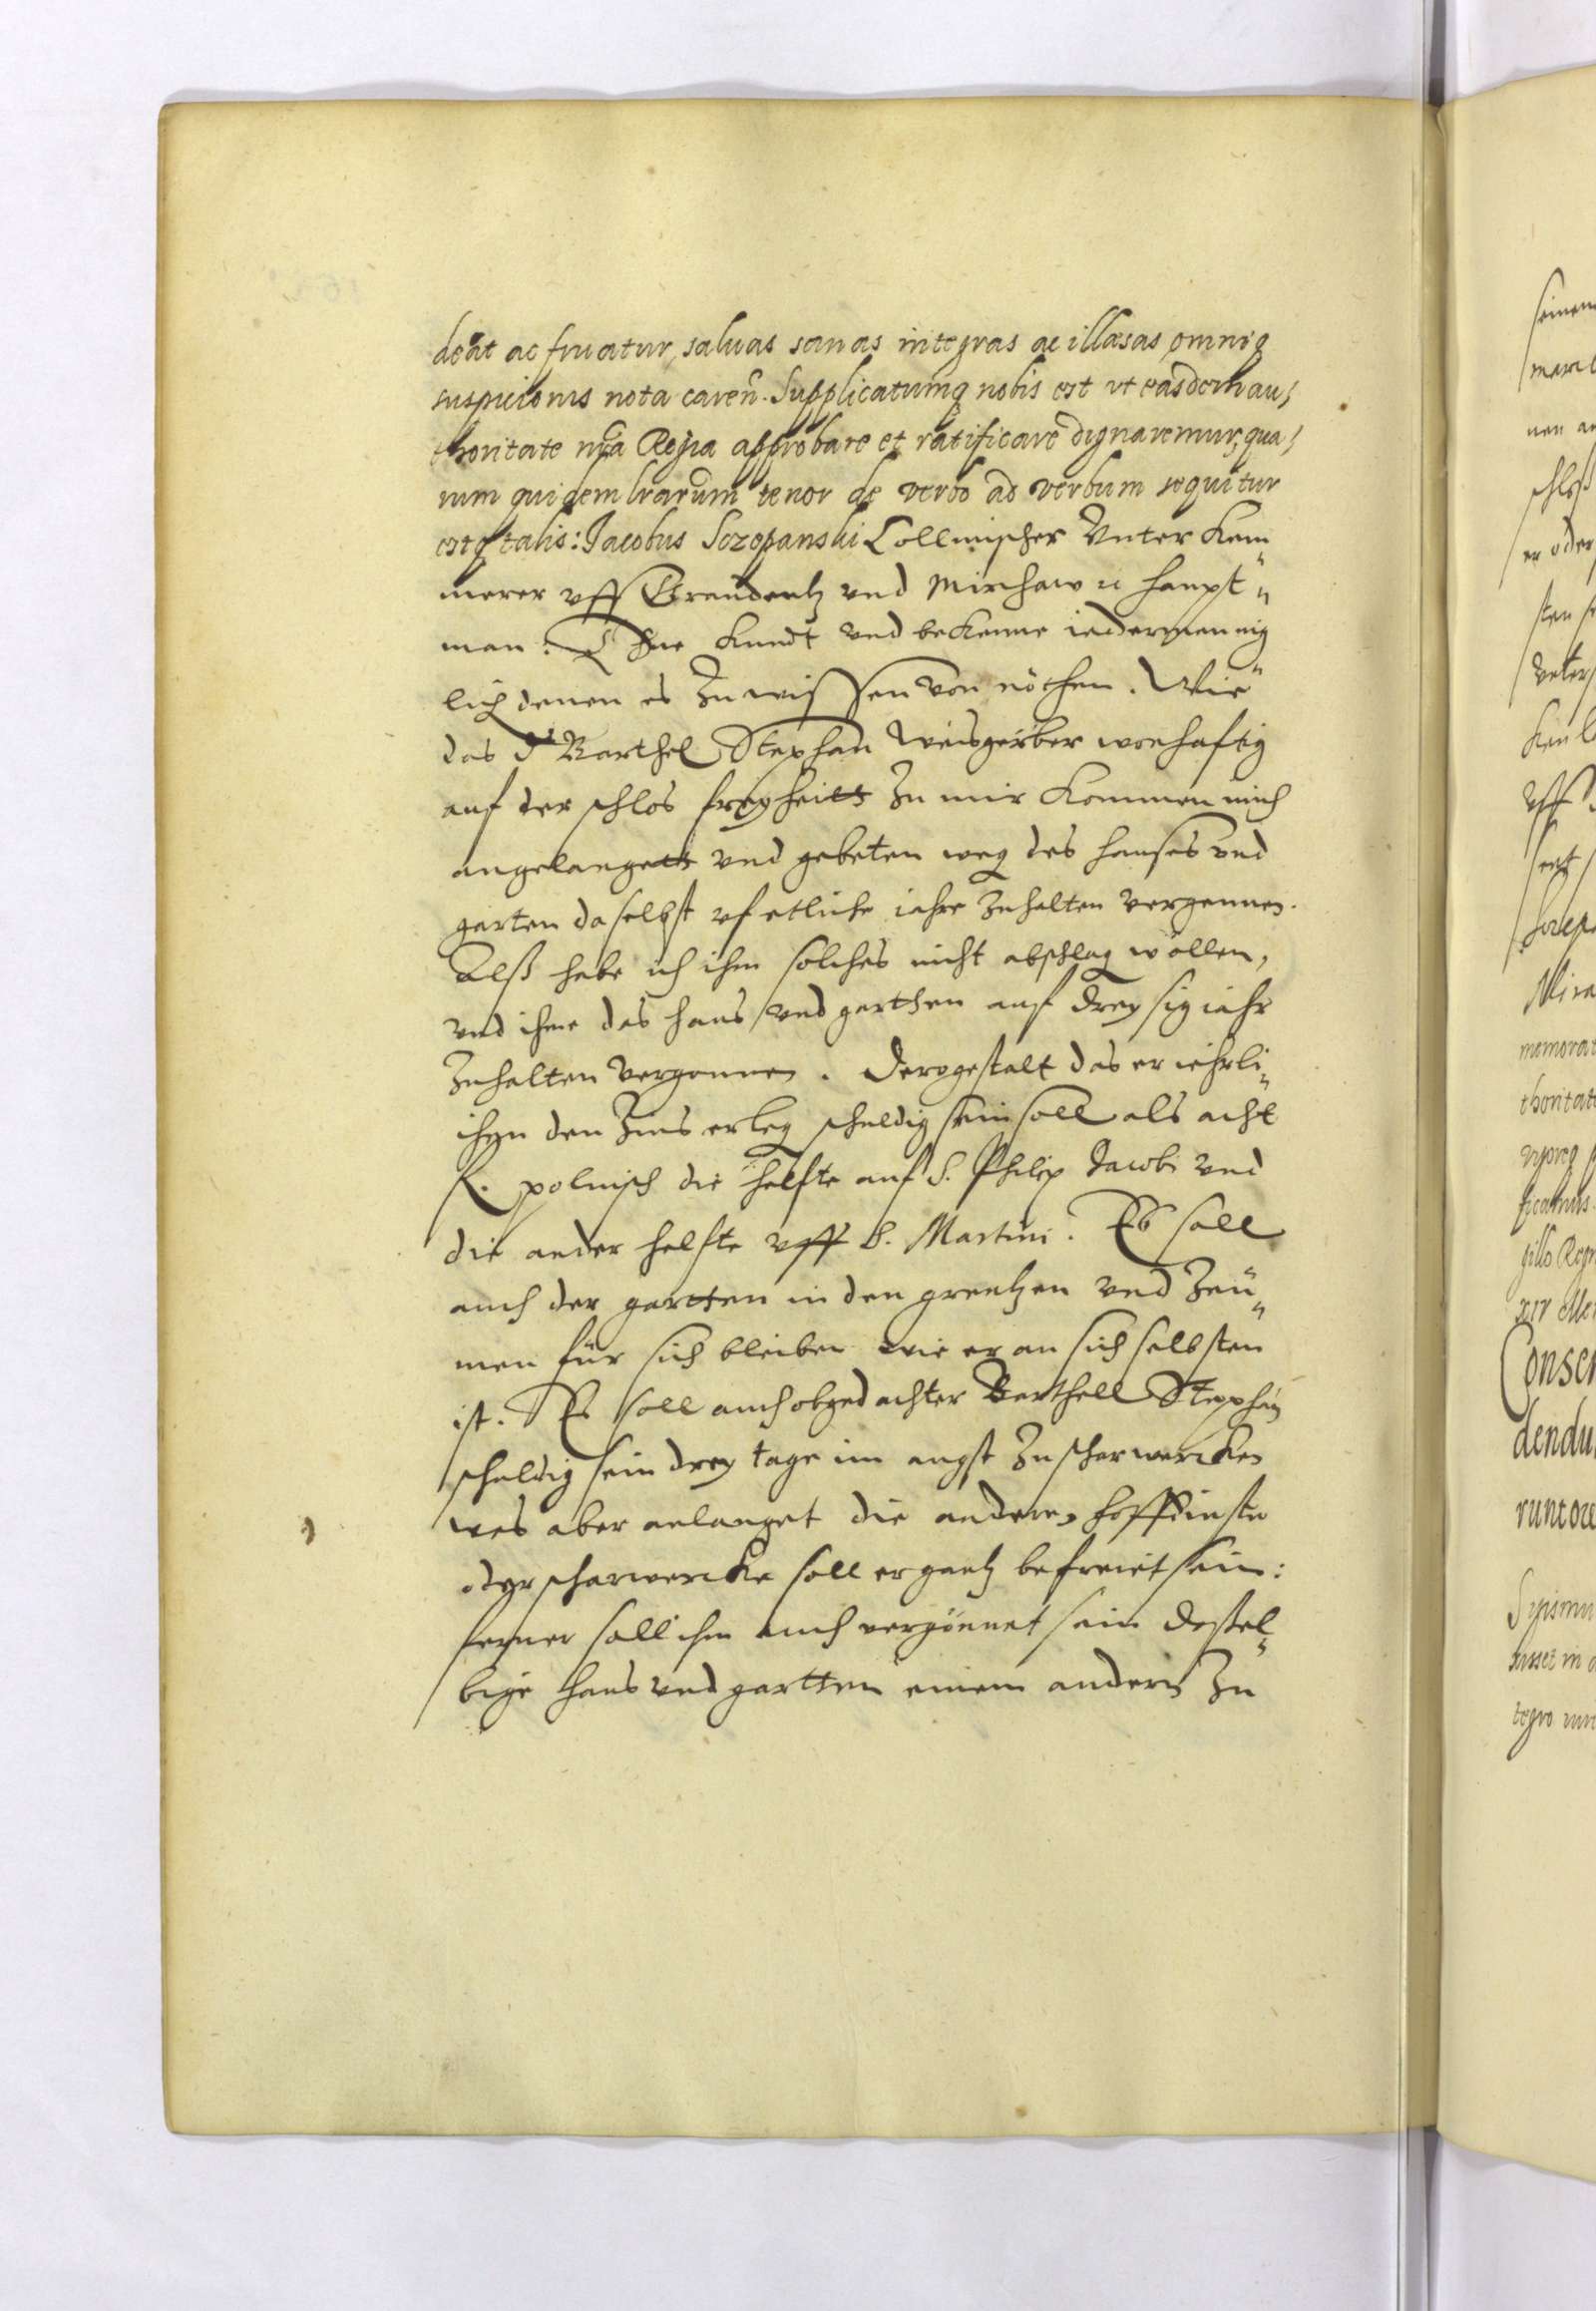 deat ac fruatur, saluas sanas integras ac illæsas omniq
suspicionis nota caren. Supplicatumq nobis est vt easdem au,
thoritate nra Regia approbare et ratificare dignaremur, qua,
rum quidem lrarum tenor de verbo ad verbum sequitur
estq talis: Jacobus Sczepanski Collmischer Vnter Kem
merer vff Graudentz vnd Mirchaw haupt
man. Thue kundt vnd bekenne iedermennig
lich denen es zu wissen von nöthen. Wie
das Barthel Stephan Weisgerber wonhaftig
auf der schlos freyheitt zu mir kommen mich
angelangett vnd gebeten weg des hauses vnd
garten daselbst vf etliche iahre zuhalten vergennen.
Alß habe ich ihm solches nicht abschlag wöllen,
vnd ihme das haus vnd garthen auf dreysig iahr
zuhalten vergonnen. Dergestalt das er iehrli
chen den Zins erleg schuldig sein soll als acht
polnisch die helfte auf S. Philip Jacobi vnd
die ander helfte vff S. Martini. Es soll
auch der gartten in den grentzen vnd Zeu
men für sich bleiben wie er an sich selbsten
ist. Es soll auch obgedachter Barthell Stephan
schuldig sein drey tage im augst zu scharwercken
was aber anlanget die anderen hoffdinste
oder scharwercke soll er gantz befreiet sein:
ferner soll ihm auch vergönnet sein dassel
bige haus vnd gartten einem andern zu
Conse
dendu
runt